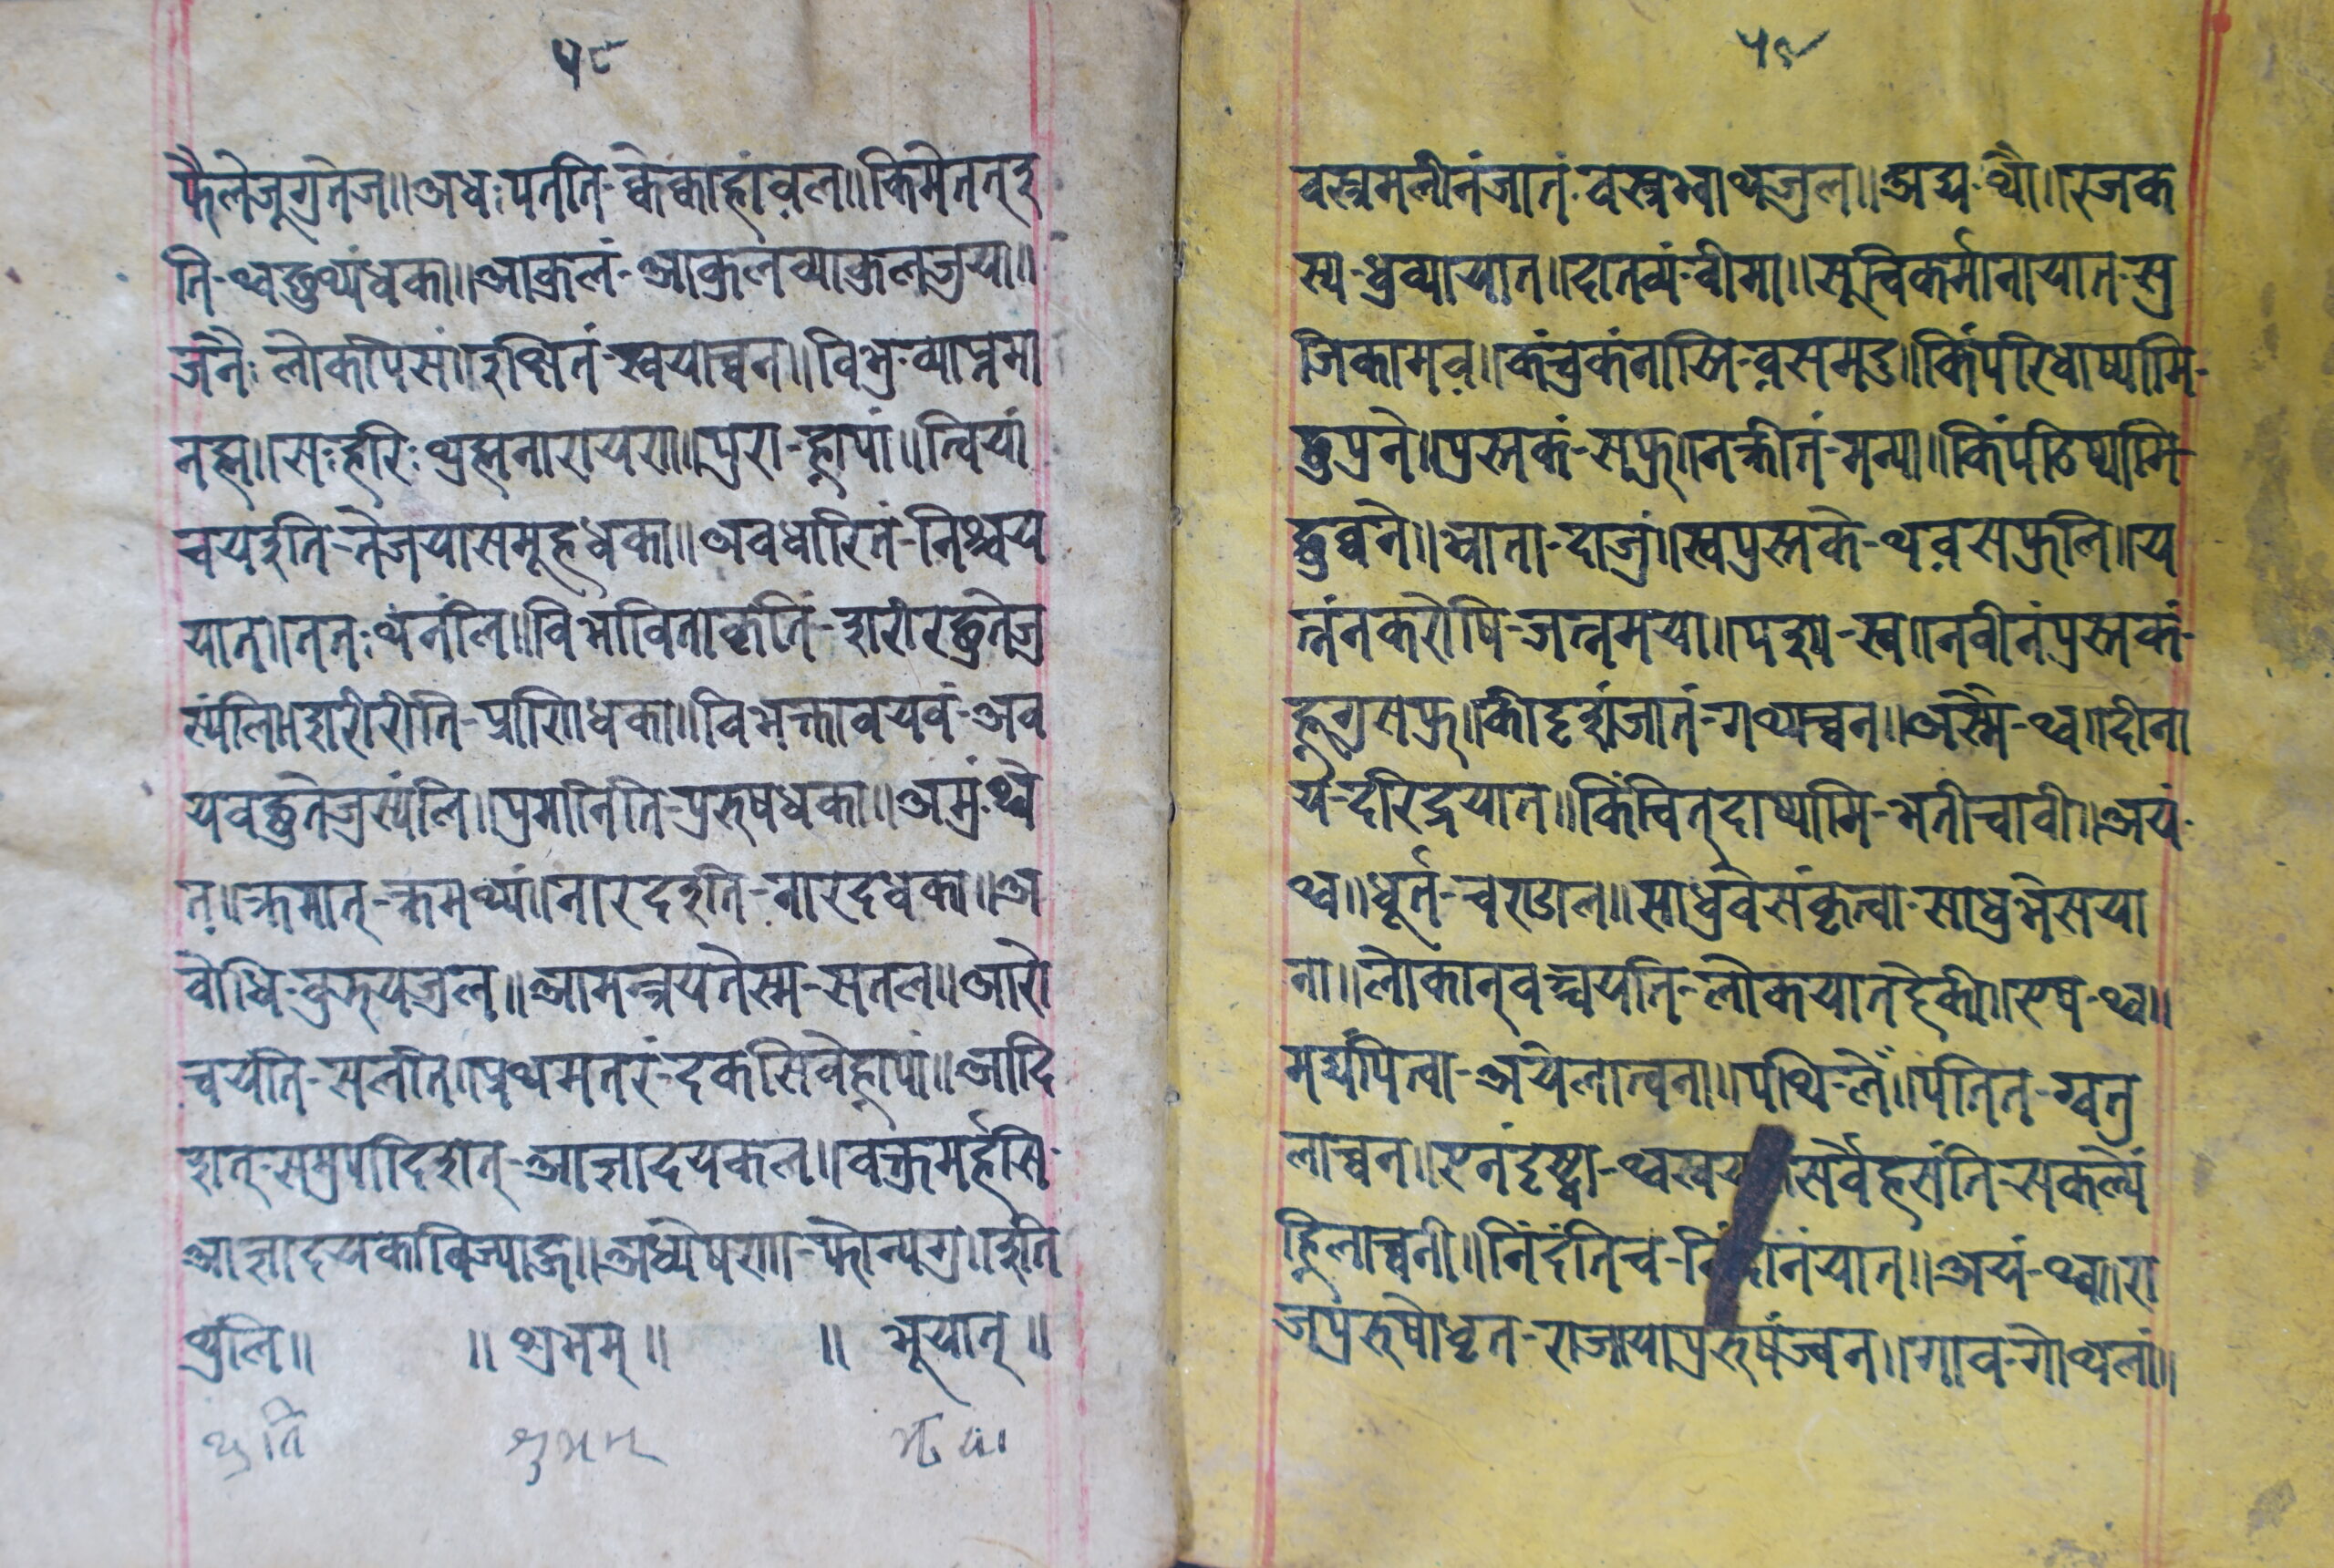 ५८
फैलेजुग्रतेज॥अधःपतति-क्वेक्वाहांवल॥किमेतत्इ
ति-थ्वछुथ्यंधका॥आकुलं-आकुलव्याकुलजुया॥
जनैः लोकपिसं॥इक्षितं-स्वयाच्वन॥विभु-व्याप्नमा
नह्म॥सःहरिः-थुह्मनारायण॥पुरा-ह्नापां॥त्विषां
चयइति-तेजयासमूहधका॥अवधारितं-निश्चय
यात॥ततःथंनंलि॥विभाविताकृतिं-शरीरछुतेजु
स्यंलि॥शरीरीति-प्राणिधका॥विभक्तावयवं-अव
यवछुतेजुस्यंलि॥पुमानिति-पुरुषधका॥अमुं-थ्वै
त॥क्रमात्-क्रमथ्यं॥नारदइति-नारदधका॥अ
बोधि-बुझयजुल॥आमन्त्रयतेस्म-सतल॥आरो
चयति-सलीत॥प्रथमतरं-दकसिवेह्नापां॥आदि
शत्-समुपादिशत्-आज्ञादयकल॥वक्तुमर्हसि-
आज्ञादयकाविज्याहुँ॥अध्येषणा-फोन्यगु॥इति
थुलि॥ ॥शुभम्॥ ॥ भूयात्॥
थुति शुभम् भूया
५९
वस्त्रमलीनंजातं-वस्त्रम्वाथजुल॥अद्य-थौं॥रजक
स्य-धुव्यायात॥दातव्यं-बीमा॥सूचिकर्मानायात-सु
जिकामव॥कंचुकंनास्ति-वसमदु॥किंपरिधाष्यामि-
छुपुने॥पुस्तकं-सफू॥नक्रीतं-मन्या॥किंपठिष्यामि-
छुब्वने॥भ्राता-दाजुं॥स्वपुस्तके-थवसफुलि॥य
त्नंनकरोषि-जत्नमयो॥पश्य-स्व॥नवीनंपुस्तकं-
ह्नूगुसफू॥कीदृशंजातं-गथ्यच्वन॥अस्मै-थ्व॥दीना
य-दरिद्रयात॥किंचित्दाष्यामि-भतीचावी॥अयं-
थ्व॥धूर्त-चण्डाल॥साधुवेसंकृत्वा-साधुभेसया
ना॥लोकान्वञ्चयति-लोकयातहेकी॥एष-थ्व॥
मद्यंपित्वा-अयेलात्वना॥पथि-लँ॥पतित-ग्वतु
लाच्वन॥एनंदृष्ट्वा-थ्वस्वय॥सर्वेहसंति-सकल्यें
ह्निलाच्वनी॥निंदंतिच-निंदानंयात॥अयं-थ्व॥रा
जपुरुषोधृत-राजायापुरुषंज्वन॥गाव-गोथ्यलां॥